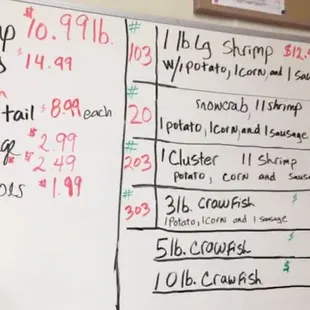 $10.99lb.
$14.99
tail $8.99 each
$2.99
$2.49
$1.99
# 103
1 lb. Lg Shrimp $12.
w/1 potato, 1 corn, and 1 sau
# 20
snowcrab, 11 shrimp
1 potato, 1 corn, and 1 sausage
# 203
1 Cluster 11 Shrimp
potato, corn and saus
# 303
3 lb. Crawfish $
1 potato, 1 corn and 1 sausage
5 lb. Crawfish $
10 lb. Crawfish $